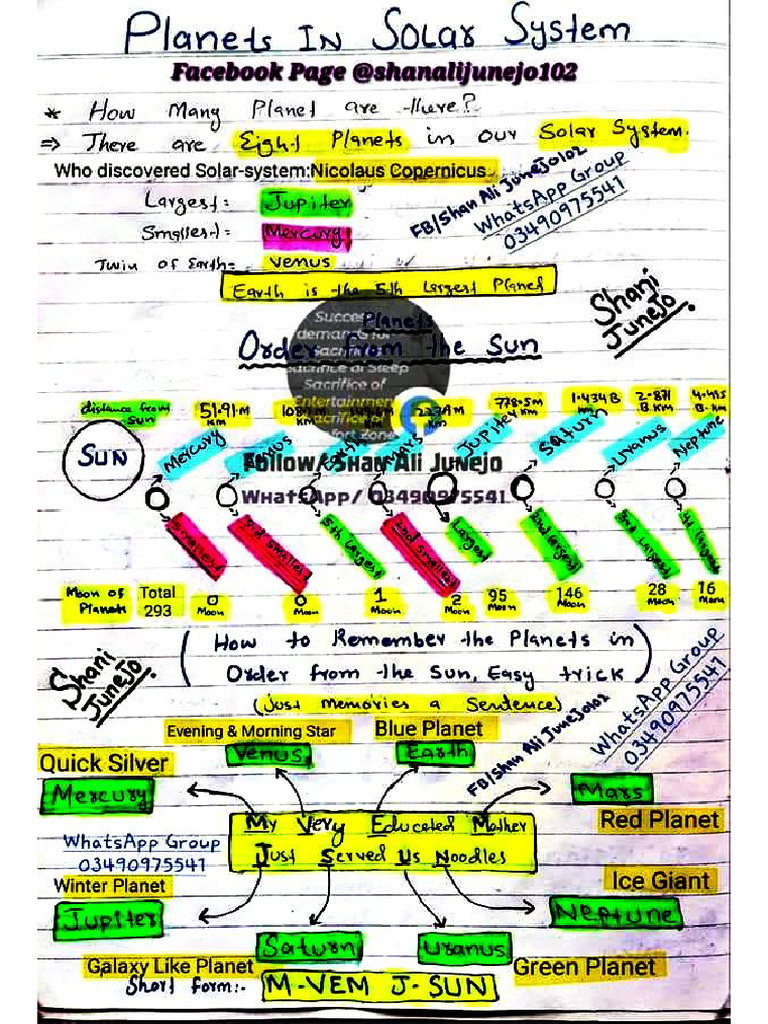 Planets In Solar System
Facebook Page @shanalijunejo102
* How Many Planet are there?
⇒ There are Eight Planets in our Solar System.
Who discovered Solar-system:Nicolaus Copernicus
Largest: Jupiter
Smallest: Mercury
Twin of Earth= Venus
FB/Shan Ali Junejo102
WhatsApp Group
03490975541
Earth is the 5th Largest Planet
Shani
Junejo.
Success
demands for
Sacrifice
Sacrifice of Sleep
Sacrifice of
Entertainment
Planets
Order from the Sun
distance from Sun
51.91 M KM
KM
KM
KM
778.5 M KM
1.434 B KM
2.871 B.KM
B.KM
SUN
Mercury
Venus
Mars
Jupiter
Saturn
Uranus
Neptune
Follow/ Shan Ali Junejo
WhatsApp/ 03490975541
Smallest
3rd smallest
5th largest
2nd smallest
Largest
2nd largest
3rd Largest
largest
Moon of Planets
Total 293
0 Moon
0 Moon
1 Moon
2 Moon
95 Moon
146 Moon
28 Moon
16 Moon
(How to Remember the Planets in
Order from the Sun, Easy trick)
(Just Memories a Sentence)
Shani
Junejo.
FB/Shan Ali Junejo102
WhatsApp Group
03490975541
Evening & Morning Star
Blue Planet
Venus
Earth
Quick Silver
Mercury
Mars
Red Planet
My Very Educated Mother
Just Served Us Noodles
WhatsApp Group
03490975541
Winter Planet
Jupiter
Ice Giant
Neptune
Saturn
Uranus
Galaxy Like Planet
Green Planet
Short form:- M-VEM J-SUN